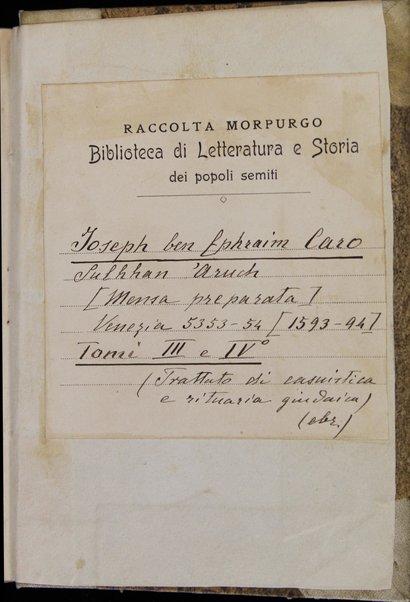 RACCOLTA MORPURGO
Biblioteca di Letteratura e Storia
dei popoli semiti
Joseph ben Ephraim Caro
Sulkhan 'Aruch
[Mensa preparata]
Venezia 5353-54 [1593-94]
Tomi III e IVº
(Trattato di casuistica
e rituaria giudaica)
(ebr.)